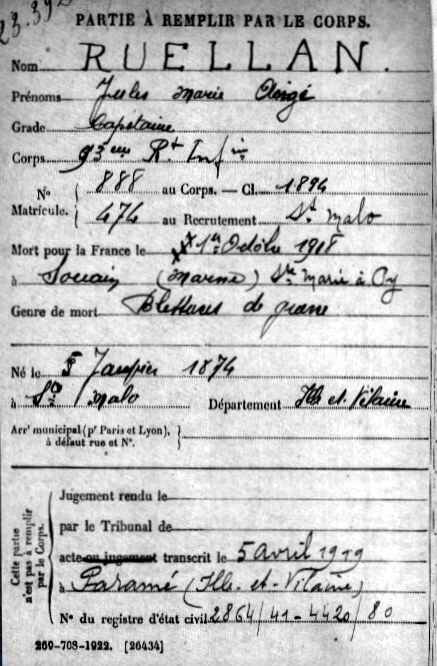 23.392
PARTIE À REMPLIR PAR LE CORPS.
Nom RUELLAN.
Prénoms Jules Marie Ange
Grade Capitaine
Corps 93eme Rt Infie
N° 888 au Corps. — Cl. 1894
Matricule. 474 au Recrutement St Malo
Mort pour la France le 1er Octobre 1918
à Souain (Marne) Ste Marie à Py
Genre de mort Blessures de guerre
Né le 5 Janvier 1874
à St Malo Département Ille et Vilaine
Arrt municipal (pr Paris et Lyon),
à défaut rue et N°.
Cette partie n'est pas à remplir par le Corps.
Jugement rendu le
par le Tribunal de
acte ou jugement transcrit le 5 avril 1919
à Paramé (Ille-et-Vilaine)
N° du registre d'état civil 2864/41-4420/80
260-708-1922. [26434]